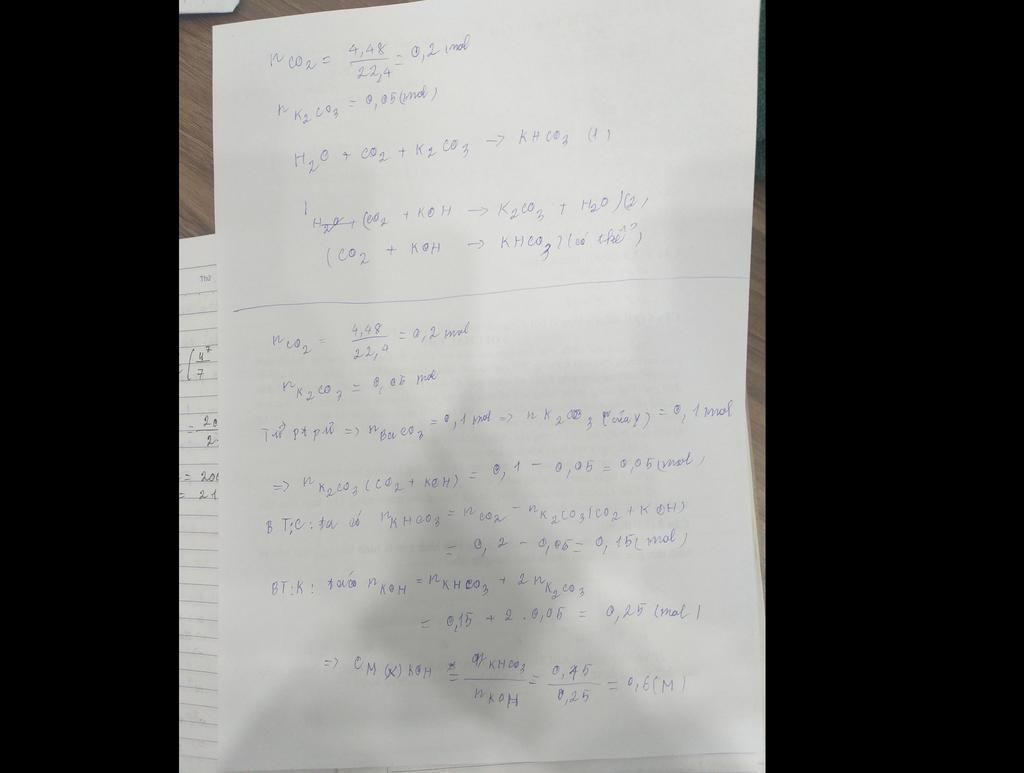 nCO2 = 4,48/22,4 = 0,2 mol
nK2CO3 = 0,05(mol)
H2O + CO2 + K2CO3 → KHCO3 (1)
(CO2 + KOH → K2CO3 + H2O)(2)
(CO2 + KOH → KHCO3)(có thể)
Th2
nCO2 = 4,48/22,4 = 0,2 mol
nK2CO3 = 0,05 mol
Từ ptpứ => nBaCO3 = 0,1 mol => nK2CO3 (của Y) = 0,1 mol
=> nK2CO3 (CO2 + KOH) = 0,1 - 0,05 = 0,05(mol)
BT:C: ta có nKHCO3 = nCO2 - nK2CO3(CO2 + KOH)
= 0,2 - 0,05 = 0,15(mol)
BT:K: ta có nKOH = nKHCO3 + 2nK2CO3
= 0,15 + 2.0,05 = 0,25 (mol)
=> CM(x) KOH = nKHCO3/nKOH = 0,15/0,25 = 0,6(M)